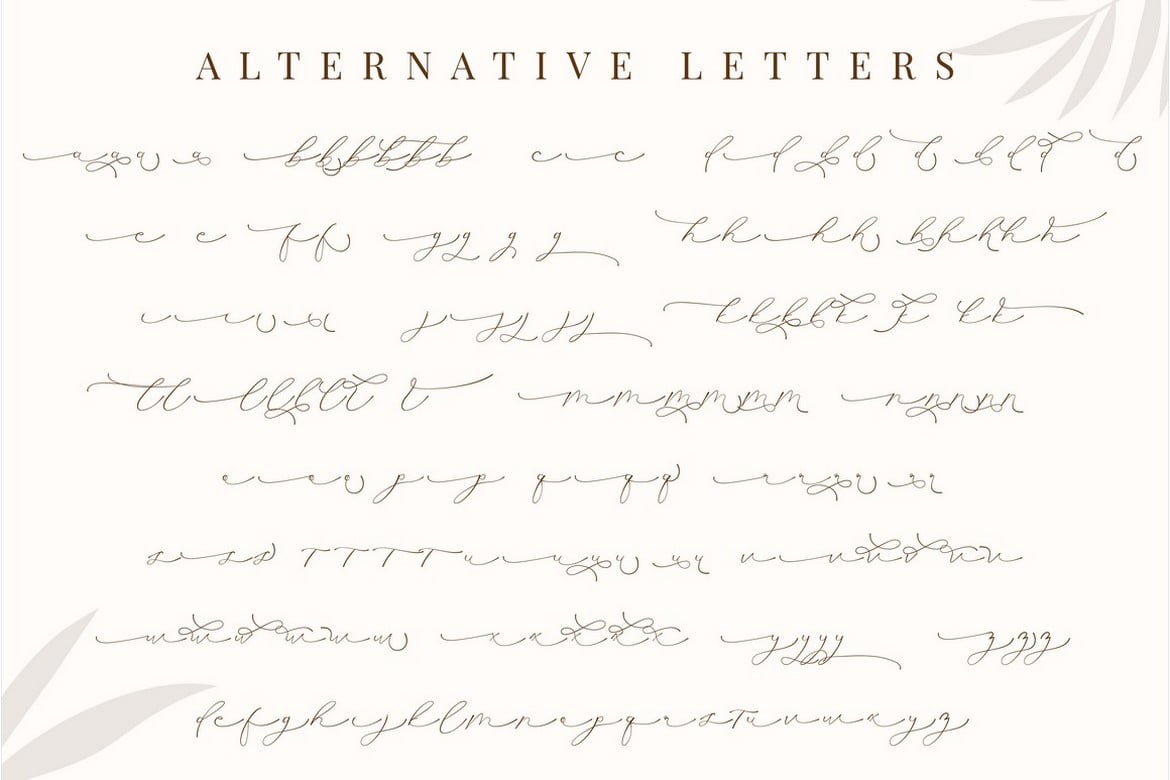 ALTERNATIVE LETTERS
a a a a a b b b b b b b c c d d d d d d d d d
e e f f g g g g h h h h h h h h h
i i i i j j j j j k k k k k k k k
l l l l l l l l m m m m m m n n n n n
o o o p p q q q r r r r r r
s s s T T T T u u u u u u u v v v v v v
w w w w w w x x x x x y y y y z z z
d e f g h i j k l m n o p q r s T u v w x y z